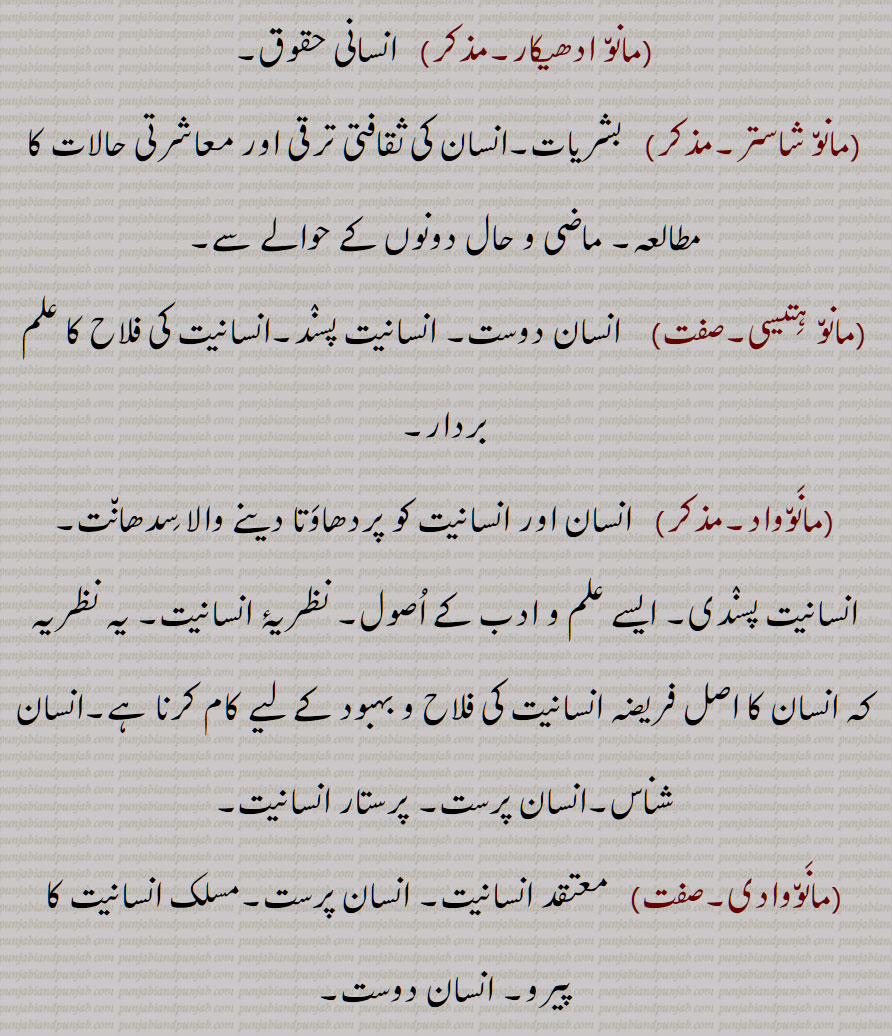 (مانوّ ادھیکار۔مذکر) انسانی حقوق۔
(مانوّ شاستر۔مذکر) بشریات۔انسان کی ثقافتی ترقی اور معاشرتی حالات کا
مطالعہ۔ ماضی و حال دونوں کے حوالے سے۔
(مانوّ ہِتیسی۔صفت) انسان دوست۔ انسانیت پسنْد۔انسانیت کی فلاح کا علم
بردار۔
(مانَوّواد۔مذکر) انسان اور انسانیت کو پردھاوَتا دینے والا سِدھانّت۔
انسانیت پسنْدی۔ ایسے علم و ادب کے اُصول۔ نظریۂ انسانیت۔ یہ نظریہ
کہ انسان کا اصل فریضہ انسانیت کی فلاح و بہبود کے لیے کام کرنا ہے۔انسان
شناس۔انسان پرست۔ پرستار انسانیت۔
(مانَوّوادی۔صفت) معتقد انسانیت۔ انسان پرست۔مسلک انسانیت کا
پیرو۔ انسان دوست۔